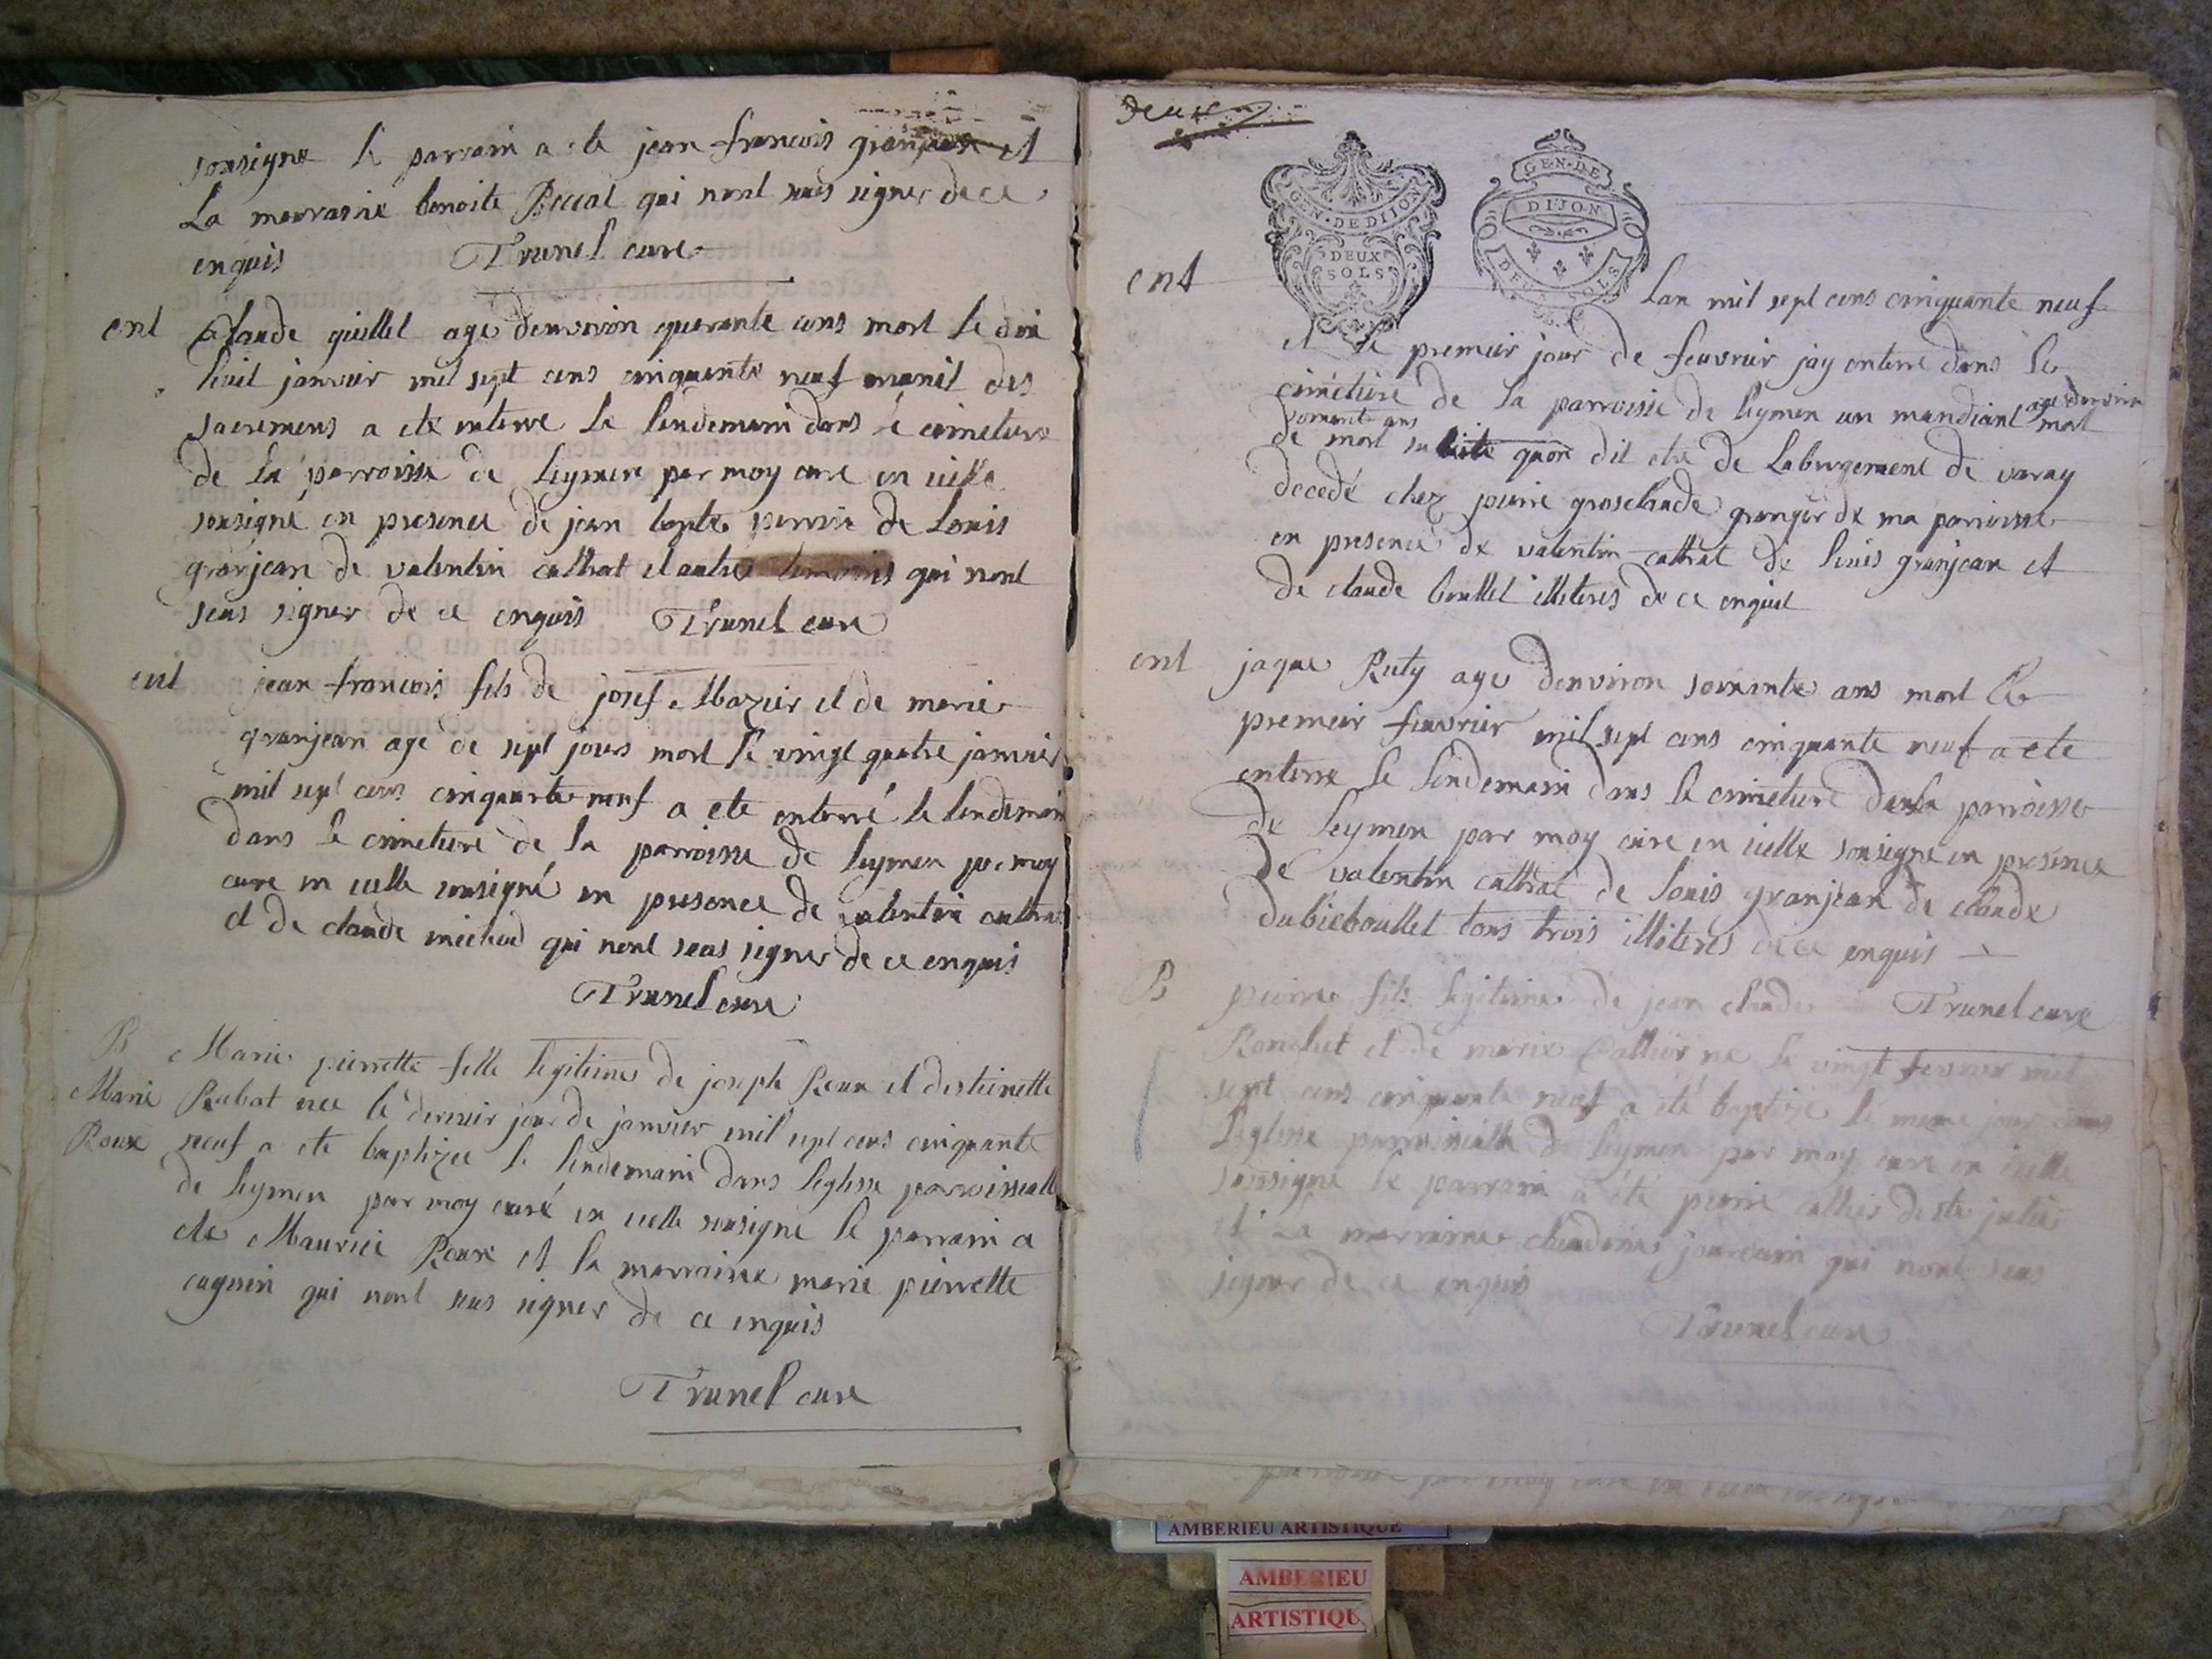 sousigne le parrain a ete jean francois granjean et
La marraine benoite Beccat qui nont seus signer de ce
enquis Trunel cure
ent Claude guillet age denviron quarante ans mort le dix
huit janvier mil sept cens cinquante neuf munit des
sacremens a ete enterre le lendemain dans le cimetiere
de la parroisse de leymen par moy cure en icelle
sousigné en presence de jean bapte de Louis
granjean de valentin cathat et autres temoins qui nont
seus signer de ce enquis Trunel cure
ent jean francois fils de josef Mazuir et de marie
granjean agé de sept jours mort le vingt quatre janvier
mil sept cens cinquante neuf a ete enterré le lendemain
dans le cimetiere de la parroisse de leymen par moy
cure en icelle sousigné en presence de valentin
et de claude michud qui nont seus signer de ce enquis
Trunel cure
B Marie pierrette fille legitime de joseph Roux et destinette
Marie Rubat nee le dernier jour de janvier mil sept cens cinquante
Roux neuf a ete baptizee le lendemain dans leglisse parroissialle
de leymen par moy curé en icelle sousigne le parrain a
ete Maurice Roux et la marraine marie pierrette
cugnin qui nont seus signer de ce enquis
Trunel cure
deux
GEN·DE DIJON
DEUX
SOLS
GEN·DE
DIJON
DEUX SOLS
ent Lan mil sept cens cinquante neuf
et le premier jour de feuvrier jay enterre dans le
cimetiere de la parroisse de leymen un mandiant age denviron
soixante ans mort
de mort subite quon dit etre de Labergement de varay
decedé chez pierre grosclaude granger de ma parroisse
en presence de valentin cathat de louis granjean et
de claude boullet illiteres de ce enquit
ent jaque Ruty age denviron soixante ans mort le
premier feuvrier mil sept cens cinquante neuf a ete
enterre le lendemain dans le cimetiere de la parroisse
de leymen par moy cure en icelle sousigne en presence
de valentin cathat de louis granjean de claude
dubieboullet tous trois illiteres de ce enquis
B pierre fils legitime de jean claude Trunel cure
Ronchet et de marie ne le vingt fevrier mil
sept cens cinquante neuf a été baptize le meme jour dans
leglisse parroissialle de leymen par moy cure en icelle
sousigne le parrain a été pierre de ste julie
et La marraine claudine jourdain qui nont seus
signer de ce enquis
Trunel cure
par moy cure en icelle
AMBERIEU ARTISTIQUE
AMBERIEU
ARTISTIQU